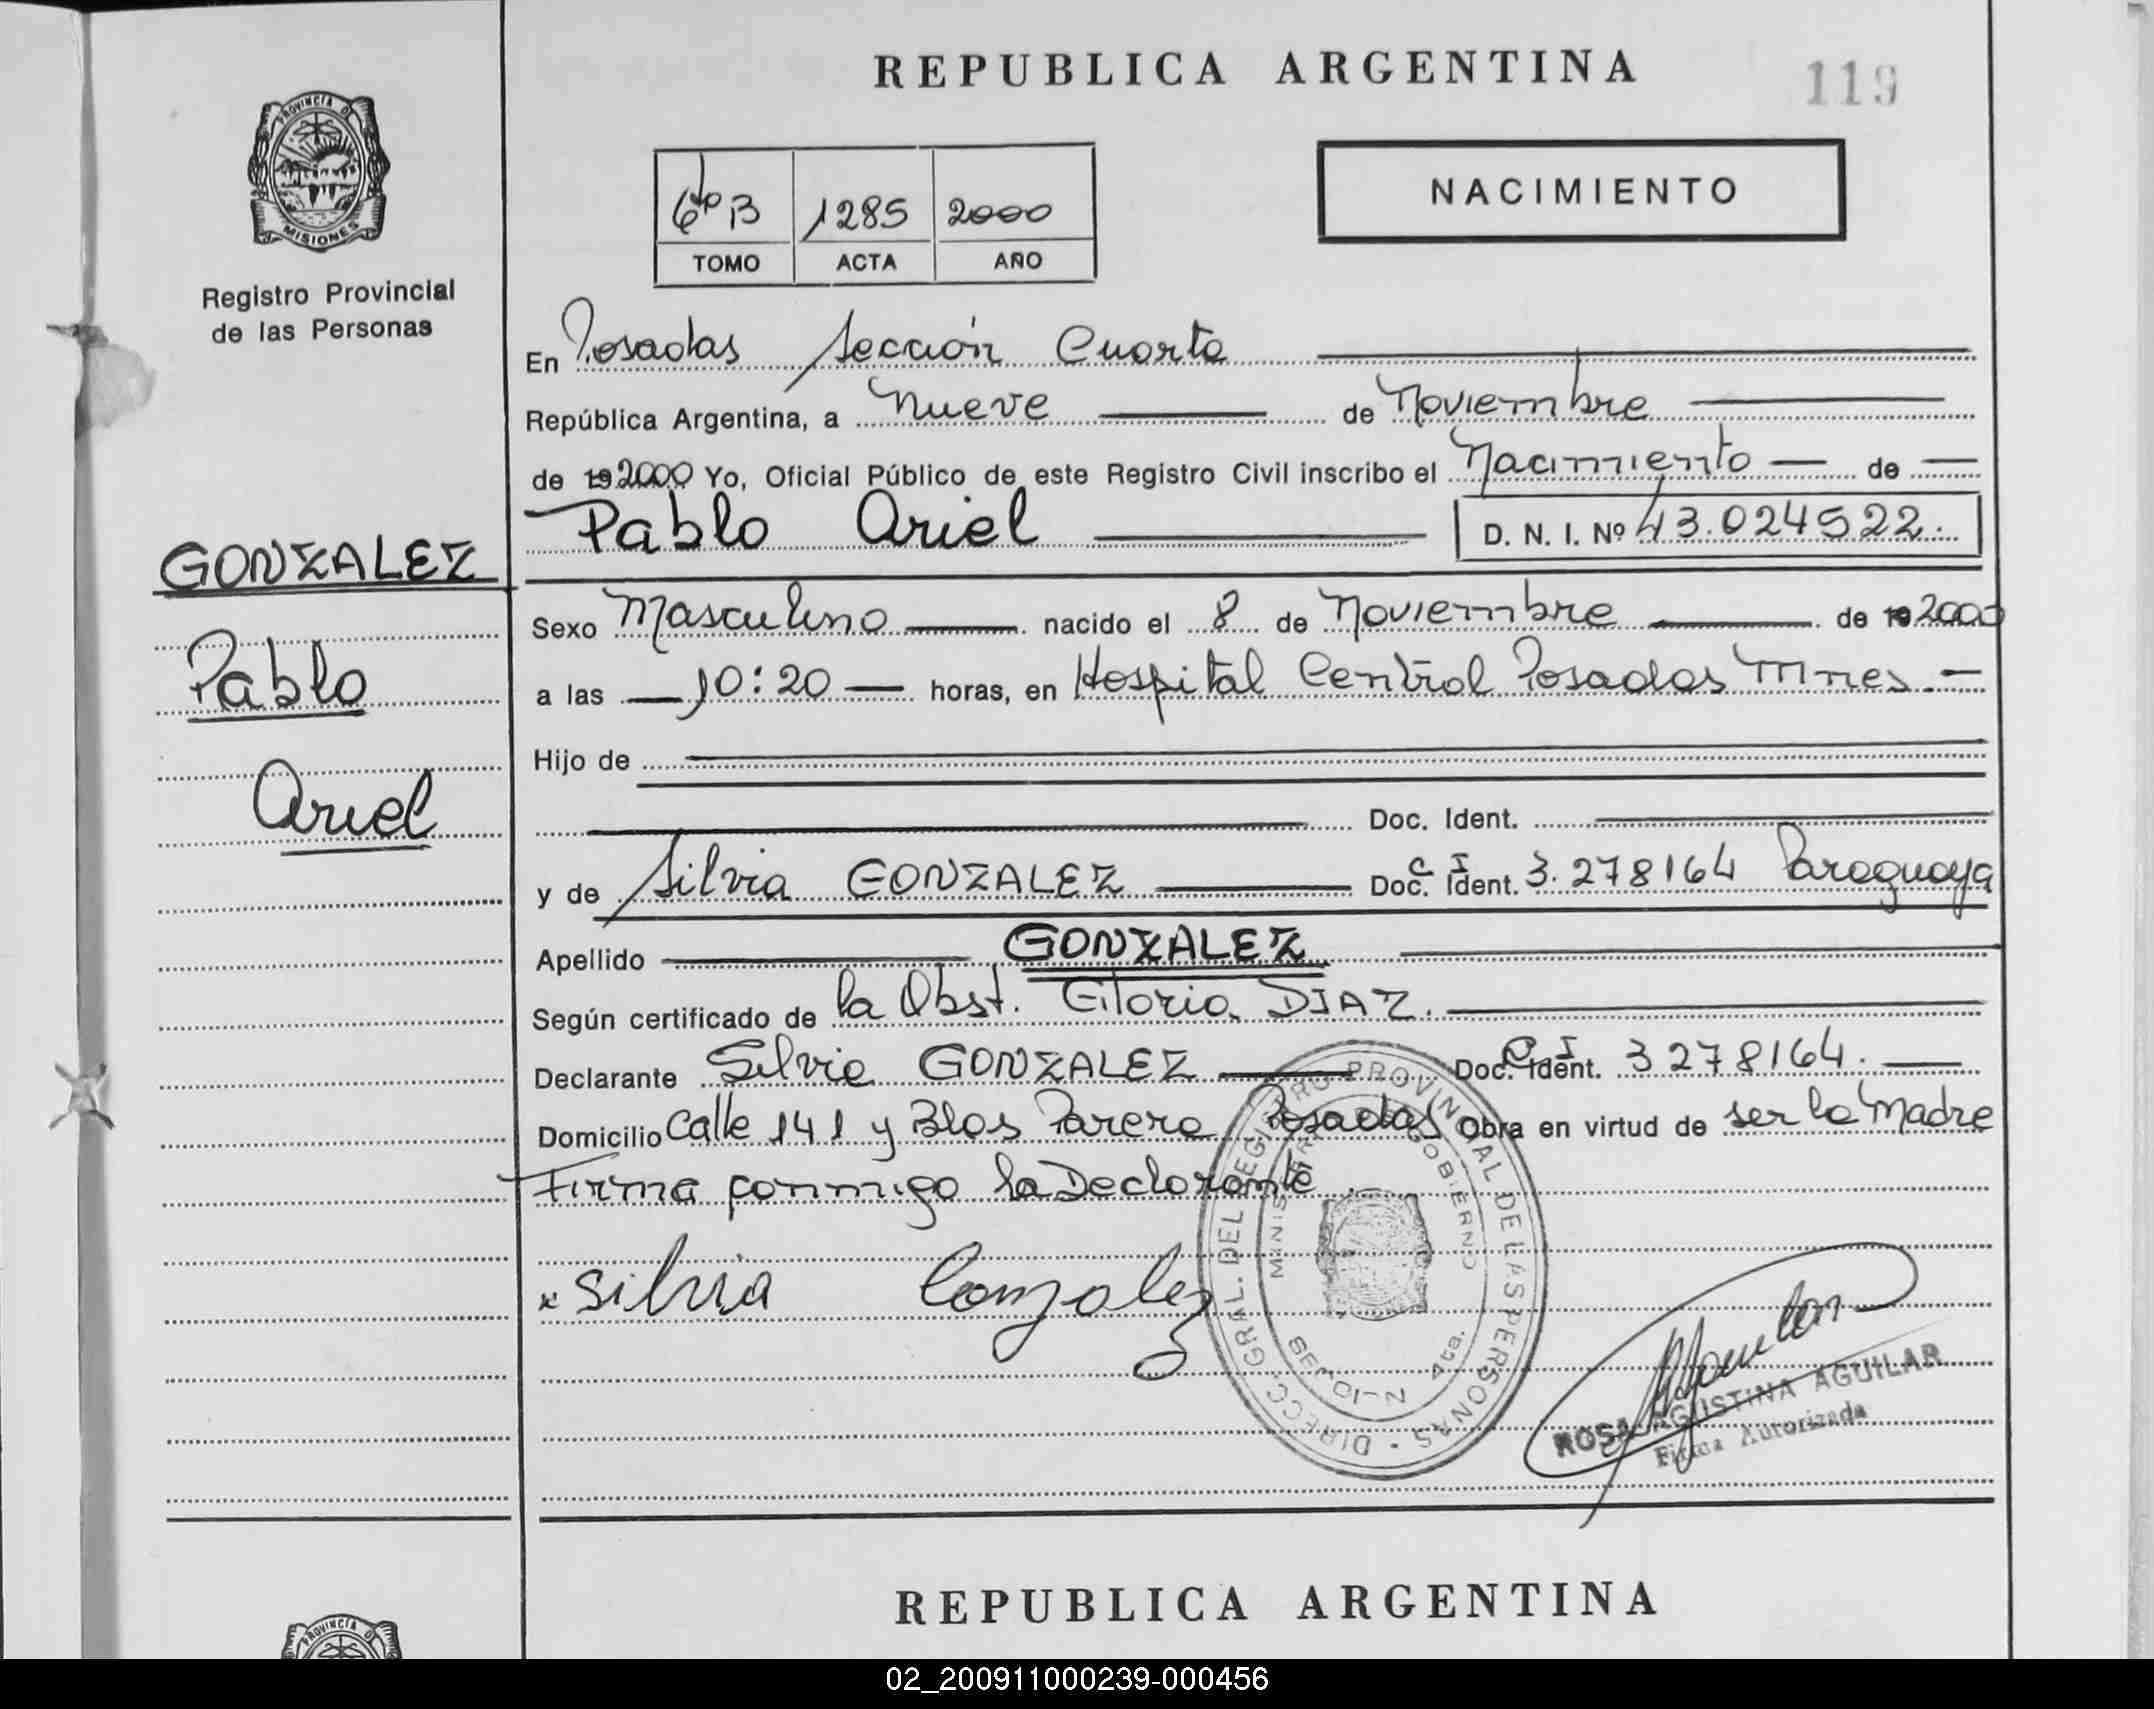 REPUBLICA ARGENTINA
119
PROVINCIA D
MISIONES
Registro Provincial
de las Personas
6to B 1285 2000
TOMO ACTA AÑO
NACIMIENTO
En Posadas Sección Cuarta
República Argentina, a Nueve de Noviembre
de 19 2000 Yo, Oficial Público de este Registro Civil inscribo el Nacimiento de
Pablo Ariel D. N. I. Nº 43.024522.
GONZALEZ
Pablo
Ariel
Sexo Masculino nacido el 8 de Noviembre de 19 2000
a las 10:20 horas, en Hospital Central Posadas Mnes.
Hijo de
Doc. Ident.
y de Silvia GONZALEZ Doc. Ident. C I 3.278164 Paraguaya
Apellido GONZALEZ
Según certificado de la Obst. Gloria DIAZ.
Declarante Silvia GONZALEZ Doc. Ident. C I 3278164.
Domicilio Calle 141 y Blas Parera Posadas Obra en virtud de ser la Madre
Firma conmigo la Declarante
x Silvia Gonzalez
DIRECC. GRAL. DEL REGISTRO PROVINCIAL DE LAS PERSONAS
GOBIERNO
SECCION 4ta.
ROSA AGUSTINA AGUILAR
Firma Autorizada
REPUBLICA ARGENTINA
PROVINCIA D
02_200911000239-000456